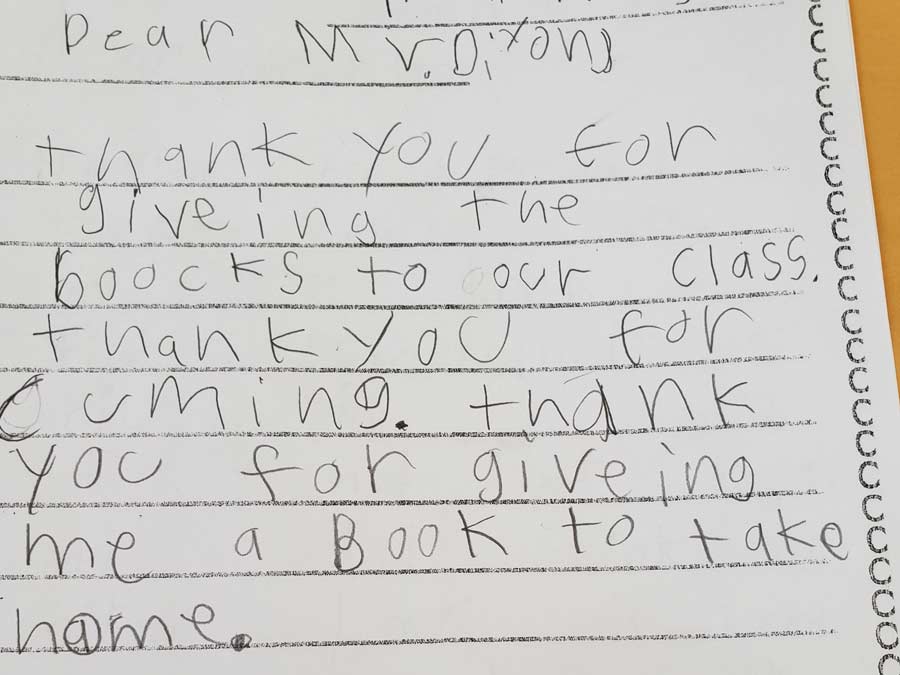 Dear Mr. Dixond
thank you for
giveing the
boocks to our class.
thank you for
cuming. thank
you for giveing
me a Book to take
home.